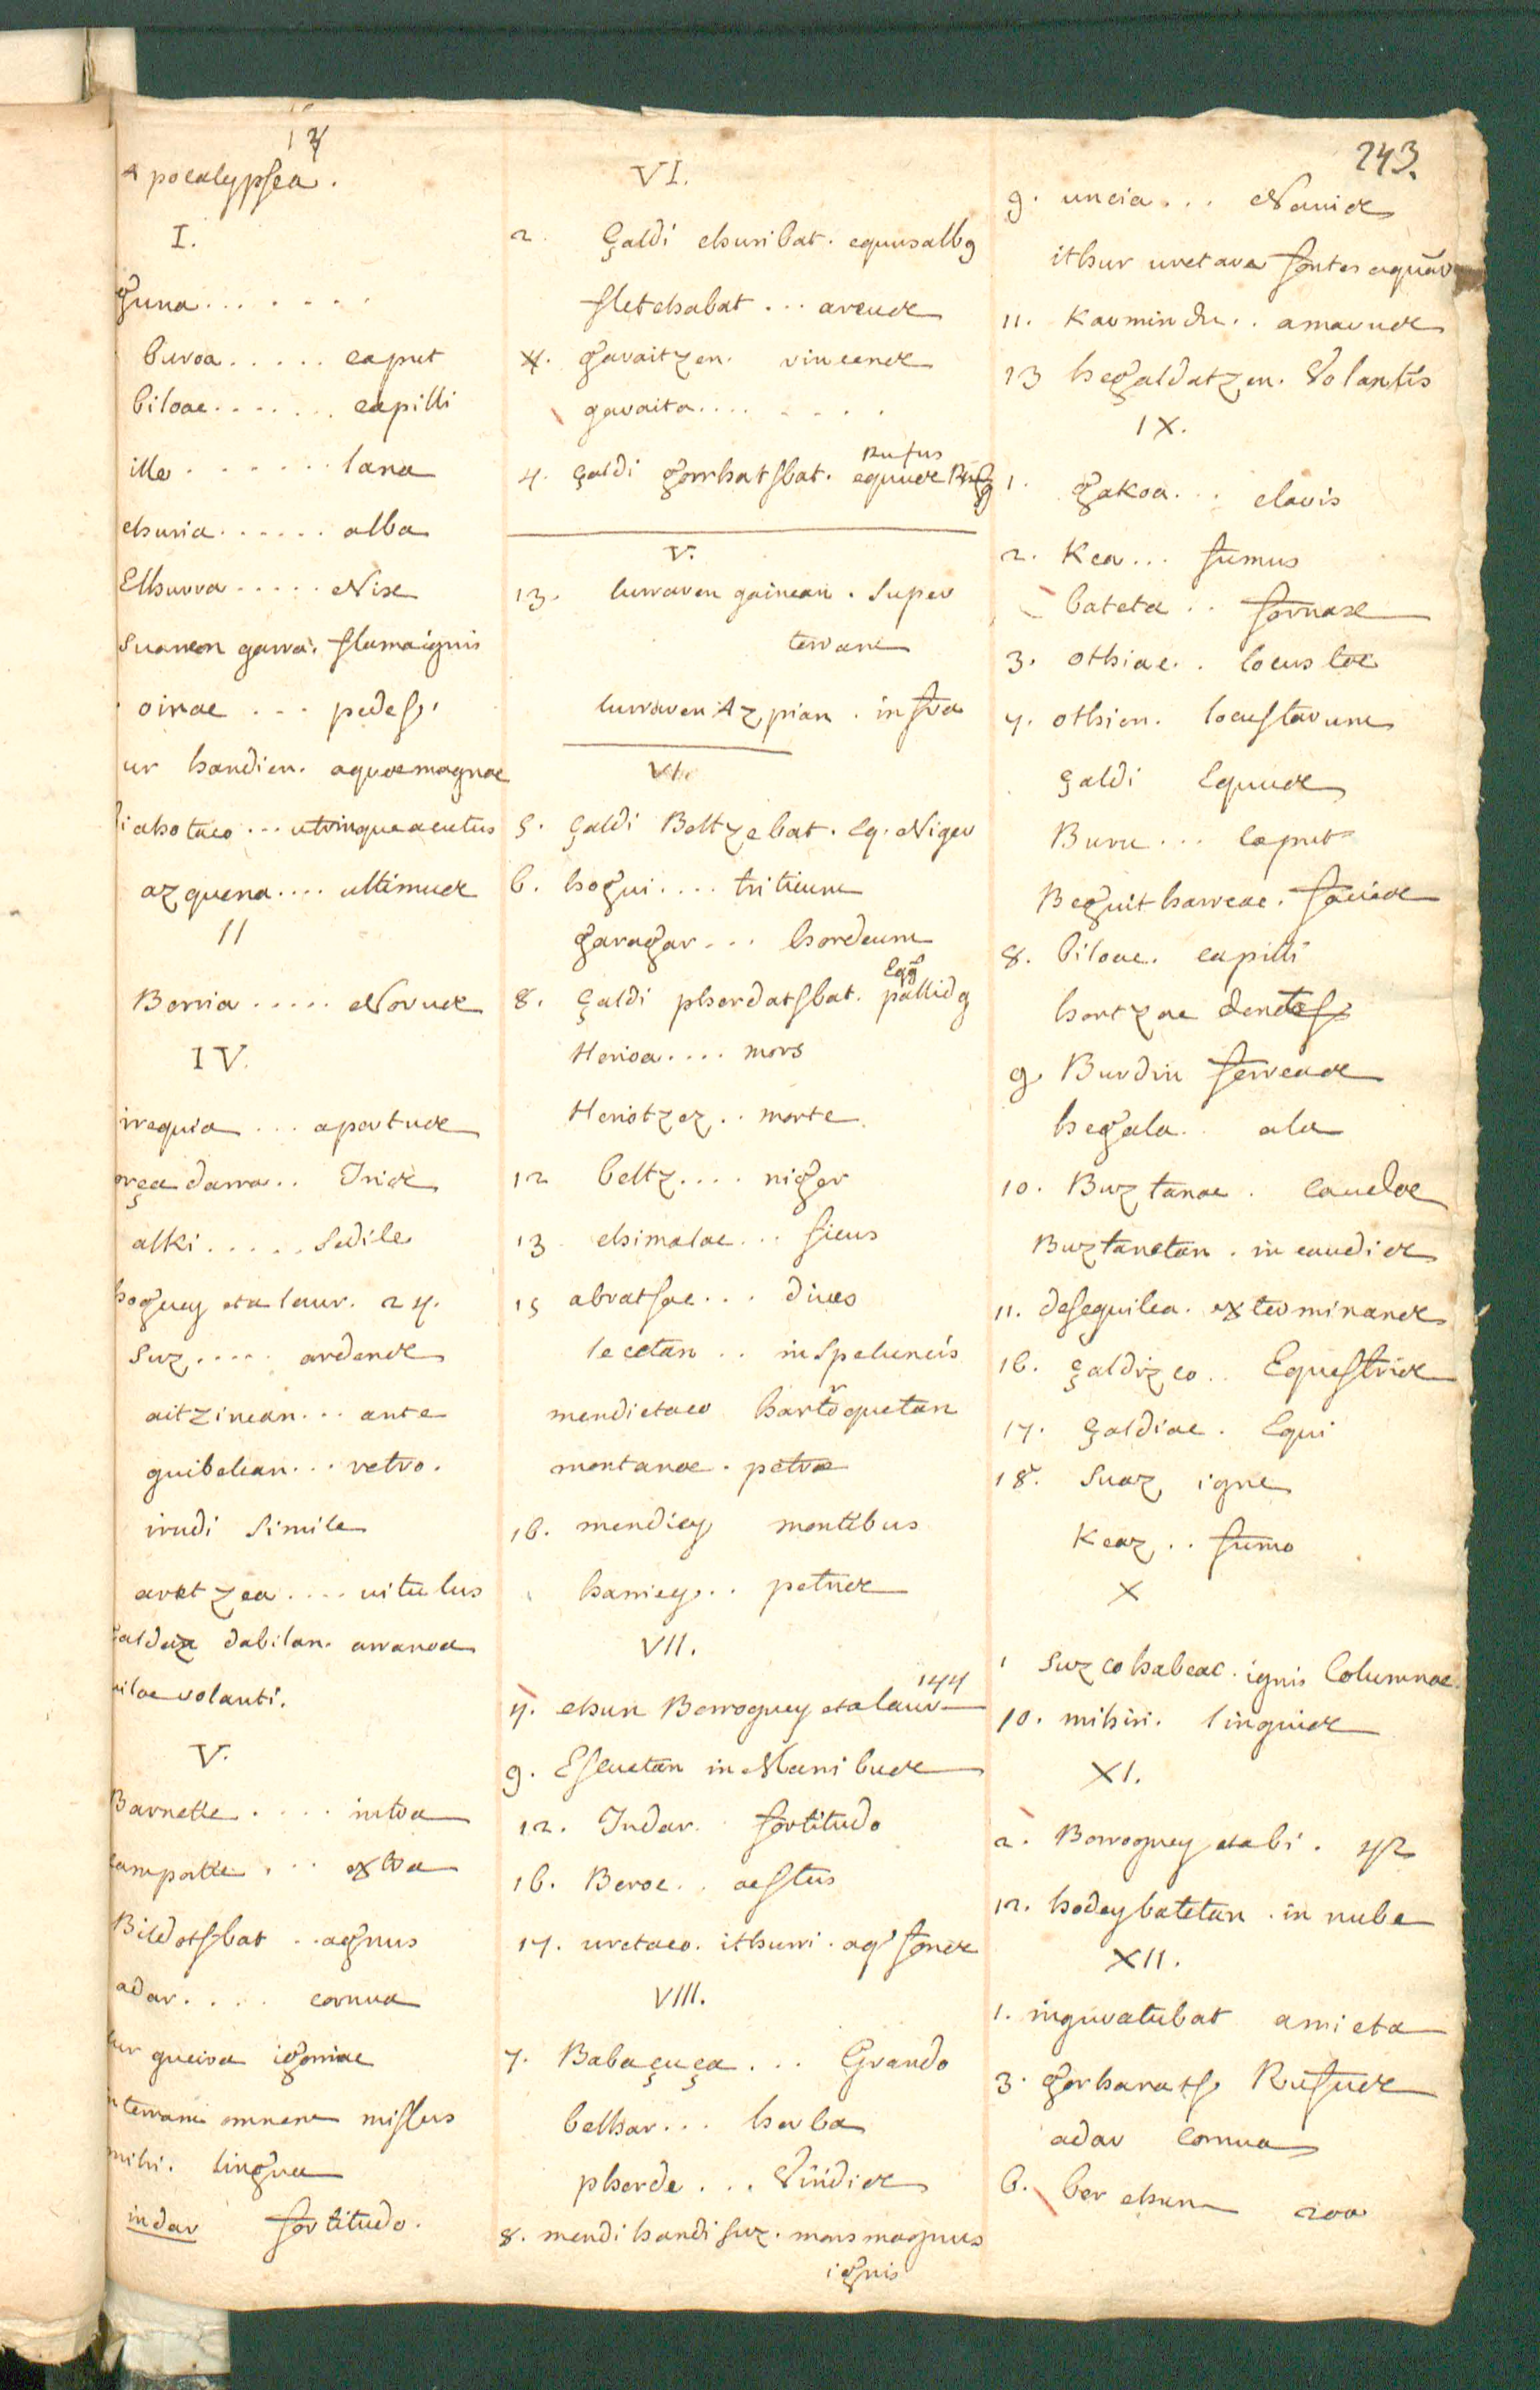 17
243.
Apocalypsea.
I.
guna.......
buroa..... caput
biloac....... capilli
ille....... lana
churia...... alba
Elhurra..... Nix
Suaren garra. flamaignis
oinac... pedes
ur handien. aquaemagnae
bi ahotaco... utrinqueacutus
azquena.... ultimus
II
Berria..... Novus
IV.
irrequia... apertus
orçadarra.. Iris
alki..... Sedile
hoguey eta laur. 24.
Suz.... ardens
aitzinean... ante
guibelean... retro.
irudi Simile
aretzea.... vitulus
dabilan. arranoa
volanti.
V.
Barnetic.... intra
campotic.... extra
Bildotsbat.. agnus
adar.... cornua
lur gucira igorriac
in terram omnem missus
mihi. lingua
indar fortitudo.
VI.
2. çaldi churibat. equusalbus
fletchabat... arcus
garaitzen. vincens
garaita........
Rufus
4. çaldi gorrhatsbat. equus
V.
13. lurraren gainean. Super
terram
lurraren Azpian. infra
VI.
5. çaldi Beltzebat. Eq. Niger
6. hogui.... triticum
garagar... hordeum
Eqq
8. çaldi pherdatsbat. pallidus
Herioa.... mors
Heriotzez.. morte
12 beltz.... niger
13 chimalac... ficus
15 abratsac... dives
lecetan.. in Speluncis
mendietaco harroquetan
montanae. petrae
16. mendiey montibus
harriey.. petris
VII.
144
4. ehun Berroguey etalaur
9. Escuetan in Manibus
12. Indar. fortitudo
16. Beroc.. aestus
17. uretaco. ithurri. aq' fons
VIII.
7. Babaçuça... Grando
belhar... herba
pherde... Viridis
8. mendi handi suz. mons magnus
ignis
9. uncia... Navis
ithur uretara fontes aquar
11. Karmindu.. amarus
13 hegaldatzen. Volantis
IX.
1. gakoa... clavis
2. Kea... fumus
bateta.. fornax
3. othiac.. locustae
7. othien. locustarum
çaldi Equus
Buru... caput
Beguitharteac. facies
8. biloac. capilli
hortzac dentes
9. Burdin ferreas
hegala.. ala
10. Buztanac. caudae
Buztanetan. in caudis
11. deseguilea. exterminans
16. çaldizco.. Equestris
17. çaldiac. Equi
18. Suaz igne
Keaz.. fumo
X
1 Suzcohabeac. ignis Columnae
10. mihiri. linguis
XI.
2. Berroguey etabi. 42
12. hodeybatetan. in nube
XII.
1. inguratubat amicta
3. gorharats Rufus
adar cornua
6. ber ehun 200